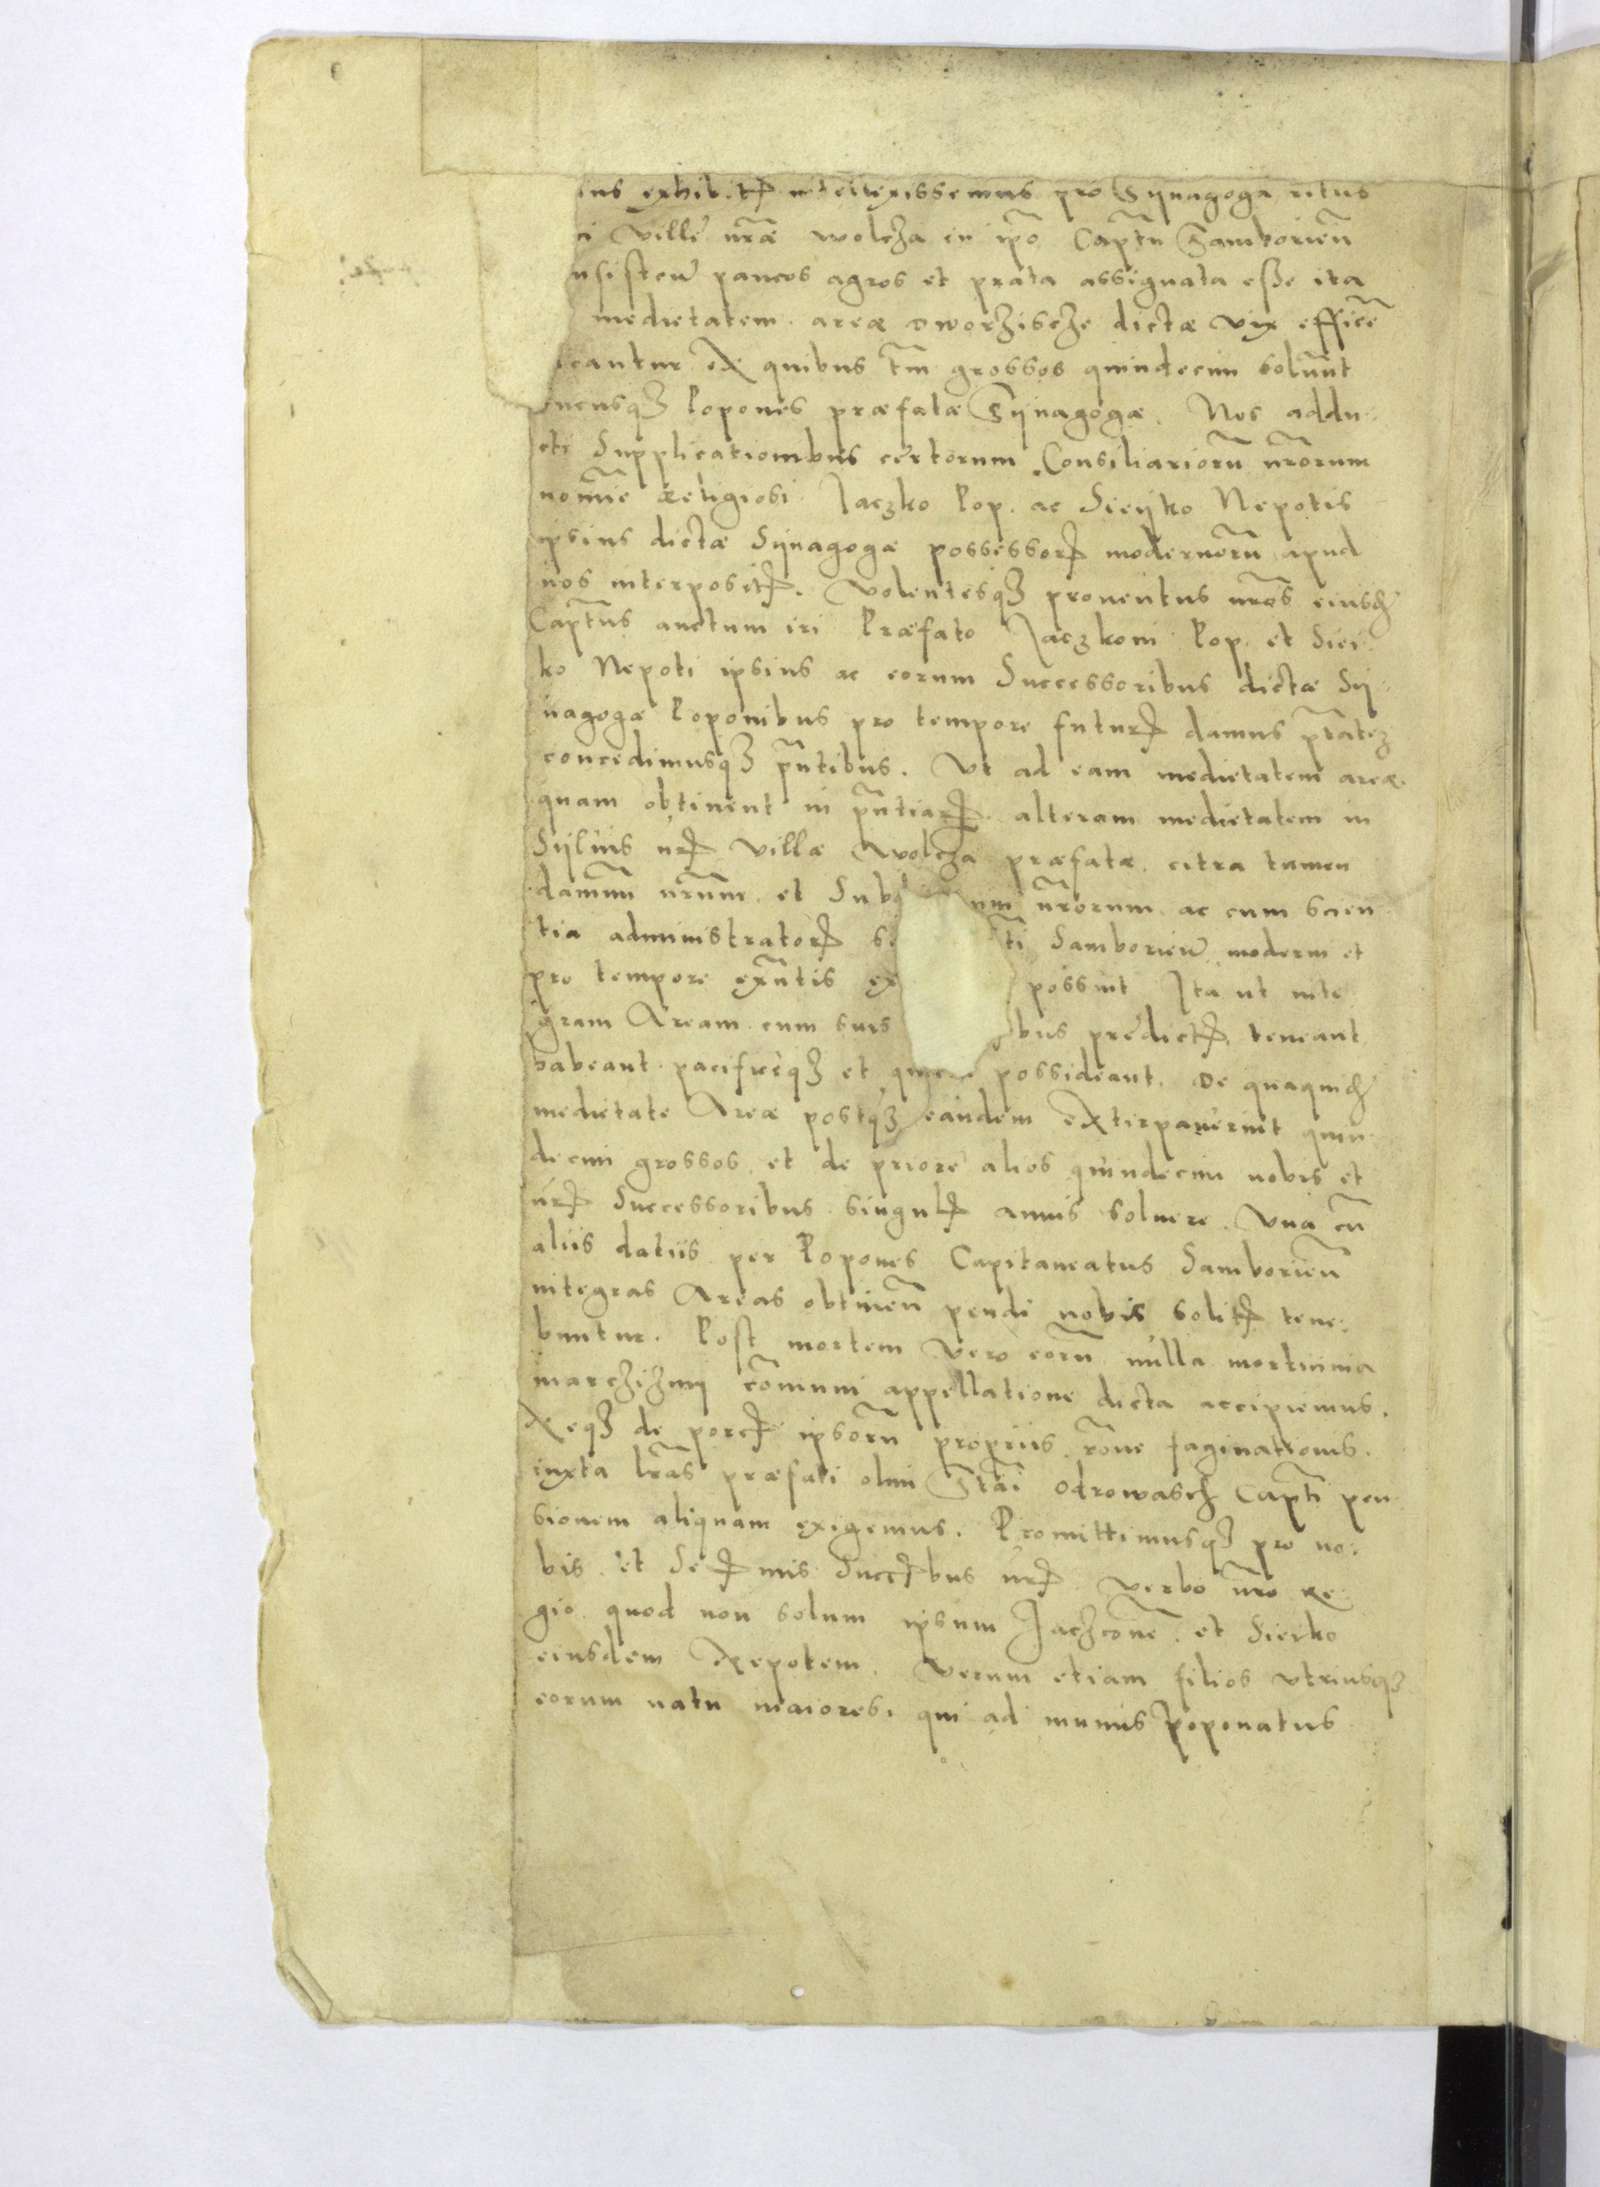 ius exhibit intellexissemus pro Synagoga ritus
ci Ville nrae Wolcza in ipo Captu Samborien
nsisten paucos agros et prata assignata esse ita
medietatem areae Dworziscze dictae vix efficē
cantur ex quibus tm grossos quindecim solvunt
Popones praefatae Synagogae. Nos addu
cti Supplicationibus certorum Consiliarioru nrorum
nomie Religiosi Jaczko Pop. ac Sieyko Nepotis
ipsius dictae Synagogae possessor modernoru apud
nos interposit. Volentesq proventus nros eiusd
Captus auctum iri Praefato Jaczkoni Pop. et Siei
ko Nepoti ipsius ac eorum Successoribus dictae Sy
nagogae Poponibus pro tempore futur damus ptatez
concedimusq pntibus. Ut ad eam medietatem areae
quam obtinent in pntiar alteram medietatem in
Sylvis nr Villae Wolcza praefatae citra tamen
damnu nrum et Sub um nrorum ac cum scien
tia administrator ti Samborien moderni et
pro tempore exntis ex possint Ita ut inte
gram Aream cum suis bus predict teneant
habeant pacificeq et possideant. De quaquid
medietate Areae postq eandem extirpaverint quin
decim grossos et de priore alios quindecim nobis et
nr Successoribus singul annis solvere. Una cu
aliis datiis per Popones Capitaneatus Samborien
integras Areas obtinen pendi nobis solit tene
buntur. Post mortem vero eoru nulla mortuinia
marczizmy comuni appellatione dicta accipiemus.
Neq de porc ipsoru propriis rone saginationis
iuxta lras praefati olim Stai Odrowasch Capti pen
sionem aliquam exigemus. Promittimusq pro no
bis et Se mis Succ bus nr Verbo nro Re
gio quod non solum ipsum Jachcone et Sieyko
eiusdem Nepotem. Verum etiam filios utriusq
eorum natu maiores, qui ad munus poponatus